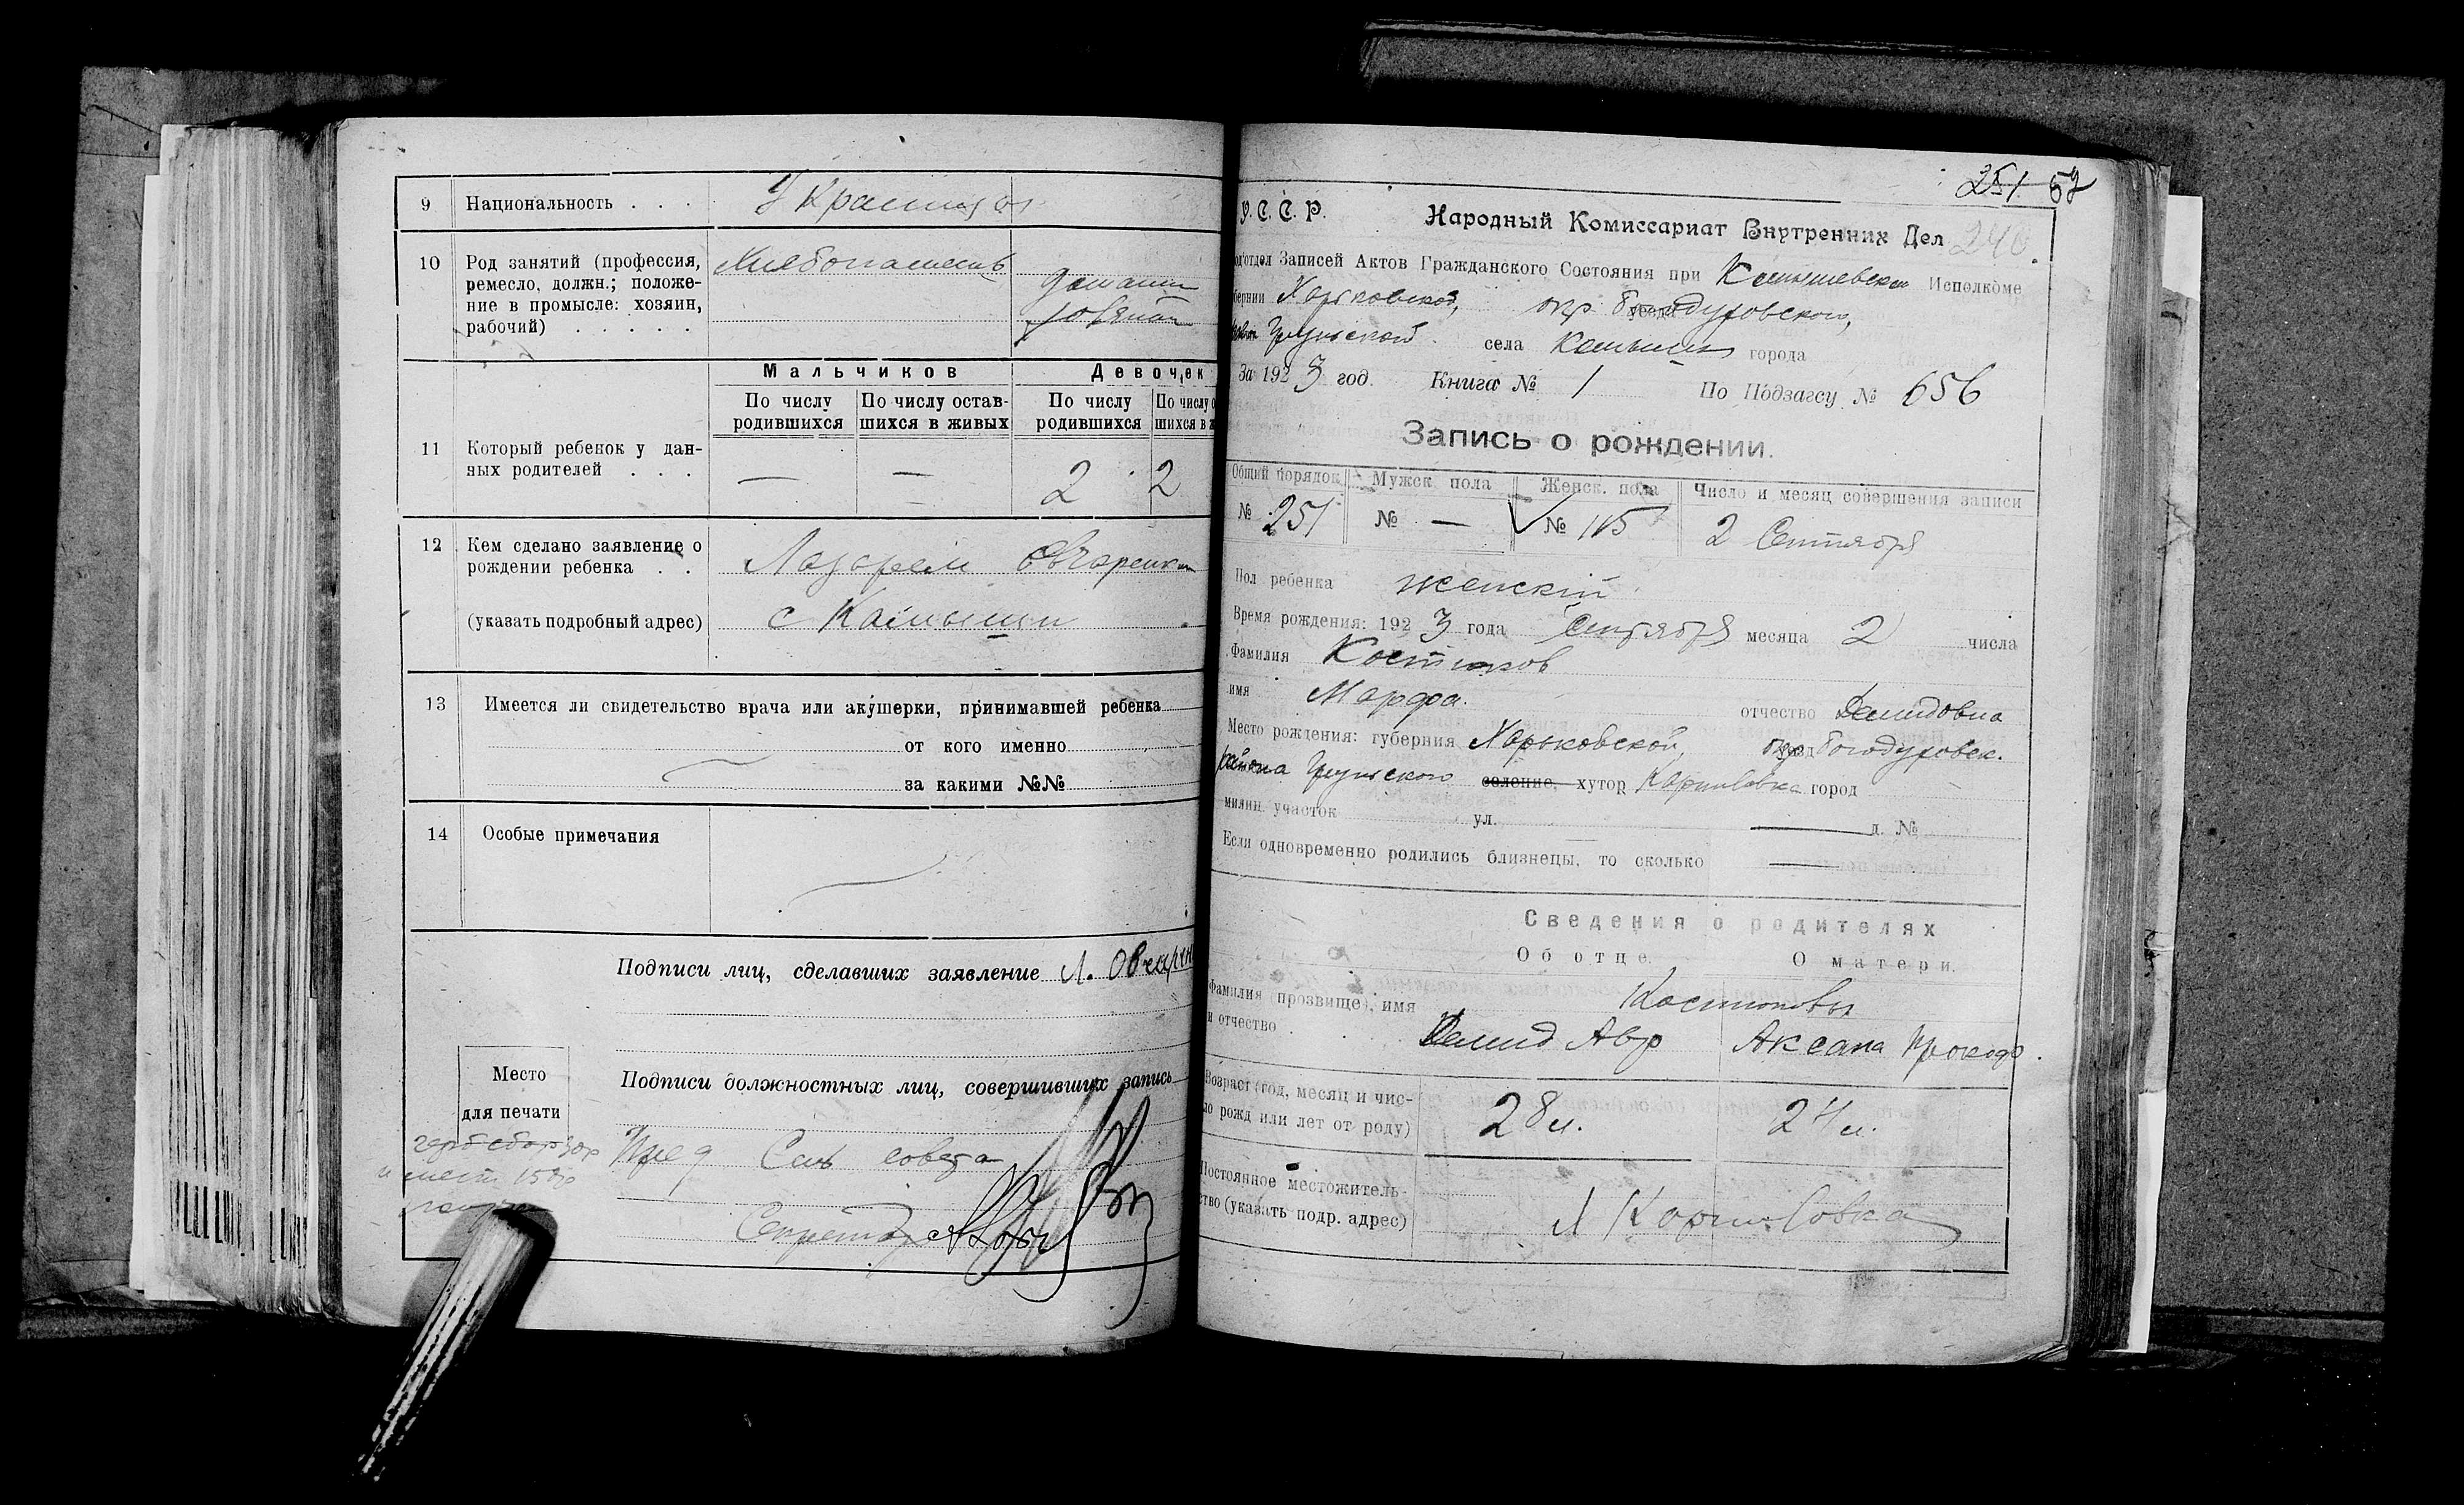 9 Национальность . . . Украинцы
10 Род занятий (профессия,
ремесло, должн.; положе-
ние в промысле: хозяин,
рабочий) . . . . .
Хлебопашець
Мальчиков Девочек
По числу родившихся По числу остав-шихся в живых По числу родившихся По числу о шихся в ж
11 Который ребенок у дан-
ных родителей . . . — — 2 2
12 Кем сделано заявление о
рождении ребенка . . Лазарем Овчаренком
(указать подробный адрес) с Камыши
13 Имеется ли свидетельство врача или акушерки, принимавшей ребенка
от кого именно
за какими №№
14 Особые примечания
Подписи лиц, сделавших заявление Л. Овчарен
Место
для печати
Подписи должностных лиц, совершивших запись
Пред Сель совета
Секретарь
251 52
У. С. С. Р. Народный Комиссариат Внутренних Дел 240.
одотдел Записей Актов Гражданского Состояния при Камышевском Исполкоме
бернии Харьковской, окр уезда Богодуховского,
села Камыши города
За 1923 год. Книга № 1 По Подзагсу № 656
Запись о рождении.
Общий порядок Мужск. пола Женск. пола Число и месяц совершения записи
№ 251 № — № 115 2 Сентября
Пол ребенка женский
Время рождения: 1923 года Сентября месяца 2 числа
Фамилия
имя Марфа. отчество Демидовна
Место рождения: губерния Харьковской, уезд окр Богодуховск.
района селение, хутор город
милиц. участок ул. — д. №
Если одновременно родились близнецы, то сколько —
Сведения о родителях
Об отце. О матери.
Фамилия (прозвище), имя
и отчество . Демид Авр Аксана Прокоф.
Возраст (год, месяц и чис-
ло рожд или лет от роду) 28 л. 24 л.
Постоянное местожитель-
ство (указать подр. адрес)